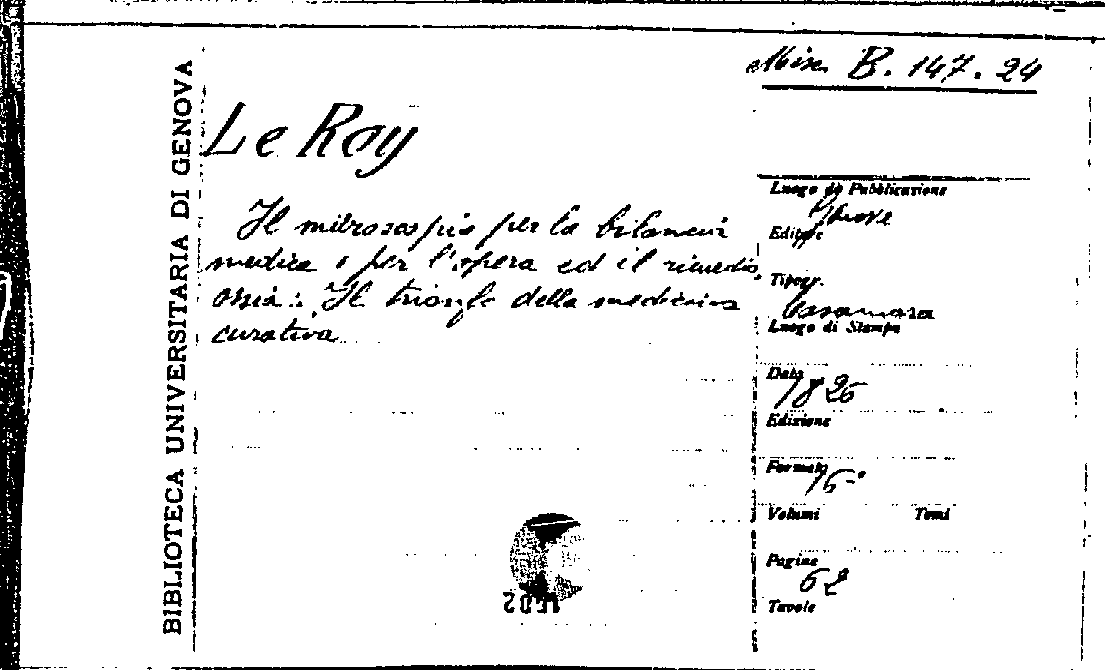 Misc. B. 147. 24
BIBLIOTECA UNIVERSITARIA DI GENOVA
Le Roy
Il microscopio per la bilancia
medica o per l'opera ed il rimedio,
ossia: Il trionfo della medicina
curativa
Luogo di Pubblicazione
Editore
Tipogr.
Casamara
Luogo di Stampa
Data
1826
Edizione
Formato
16°
Volumi Tomi
Pagine
62
Tavole